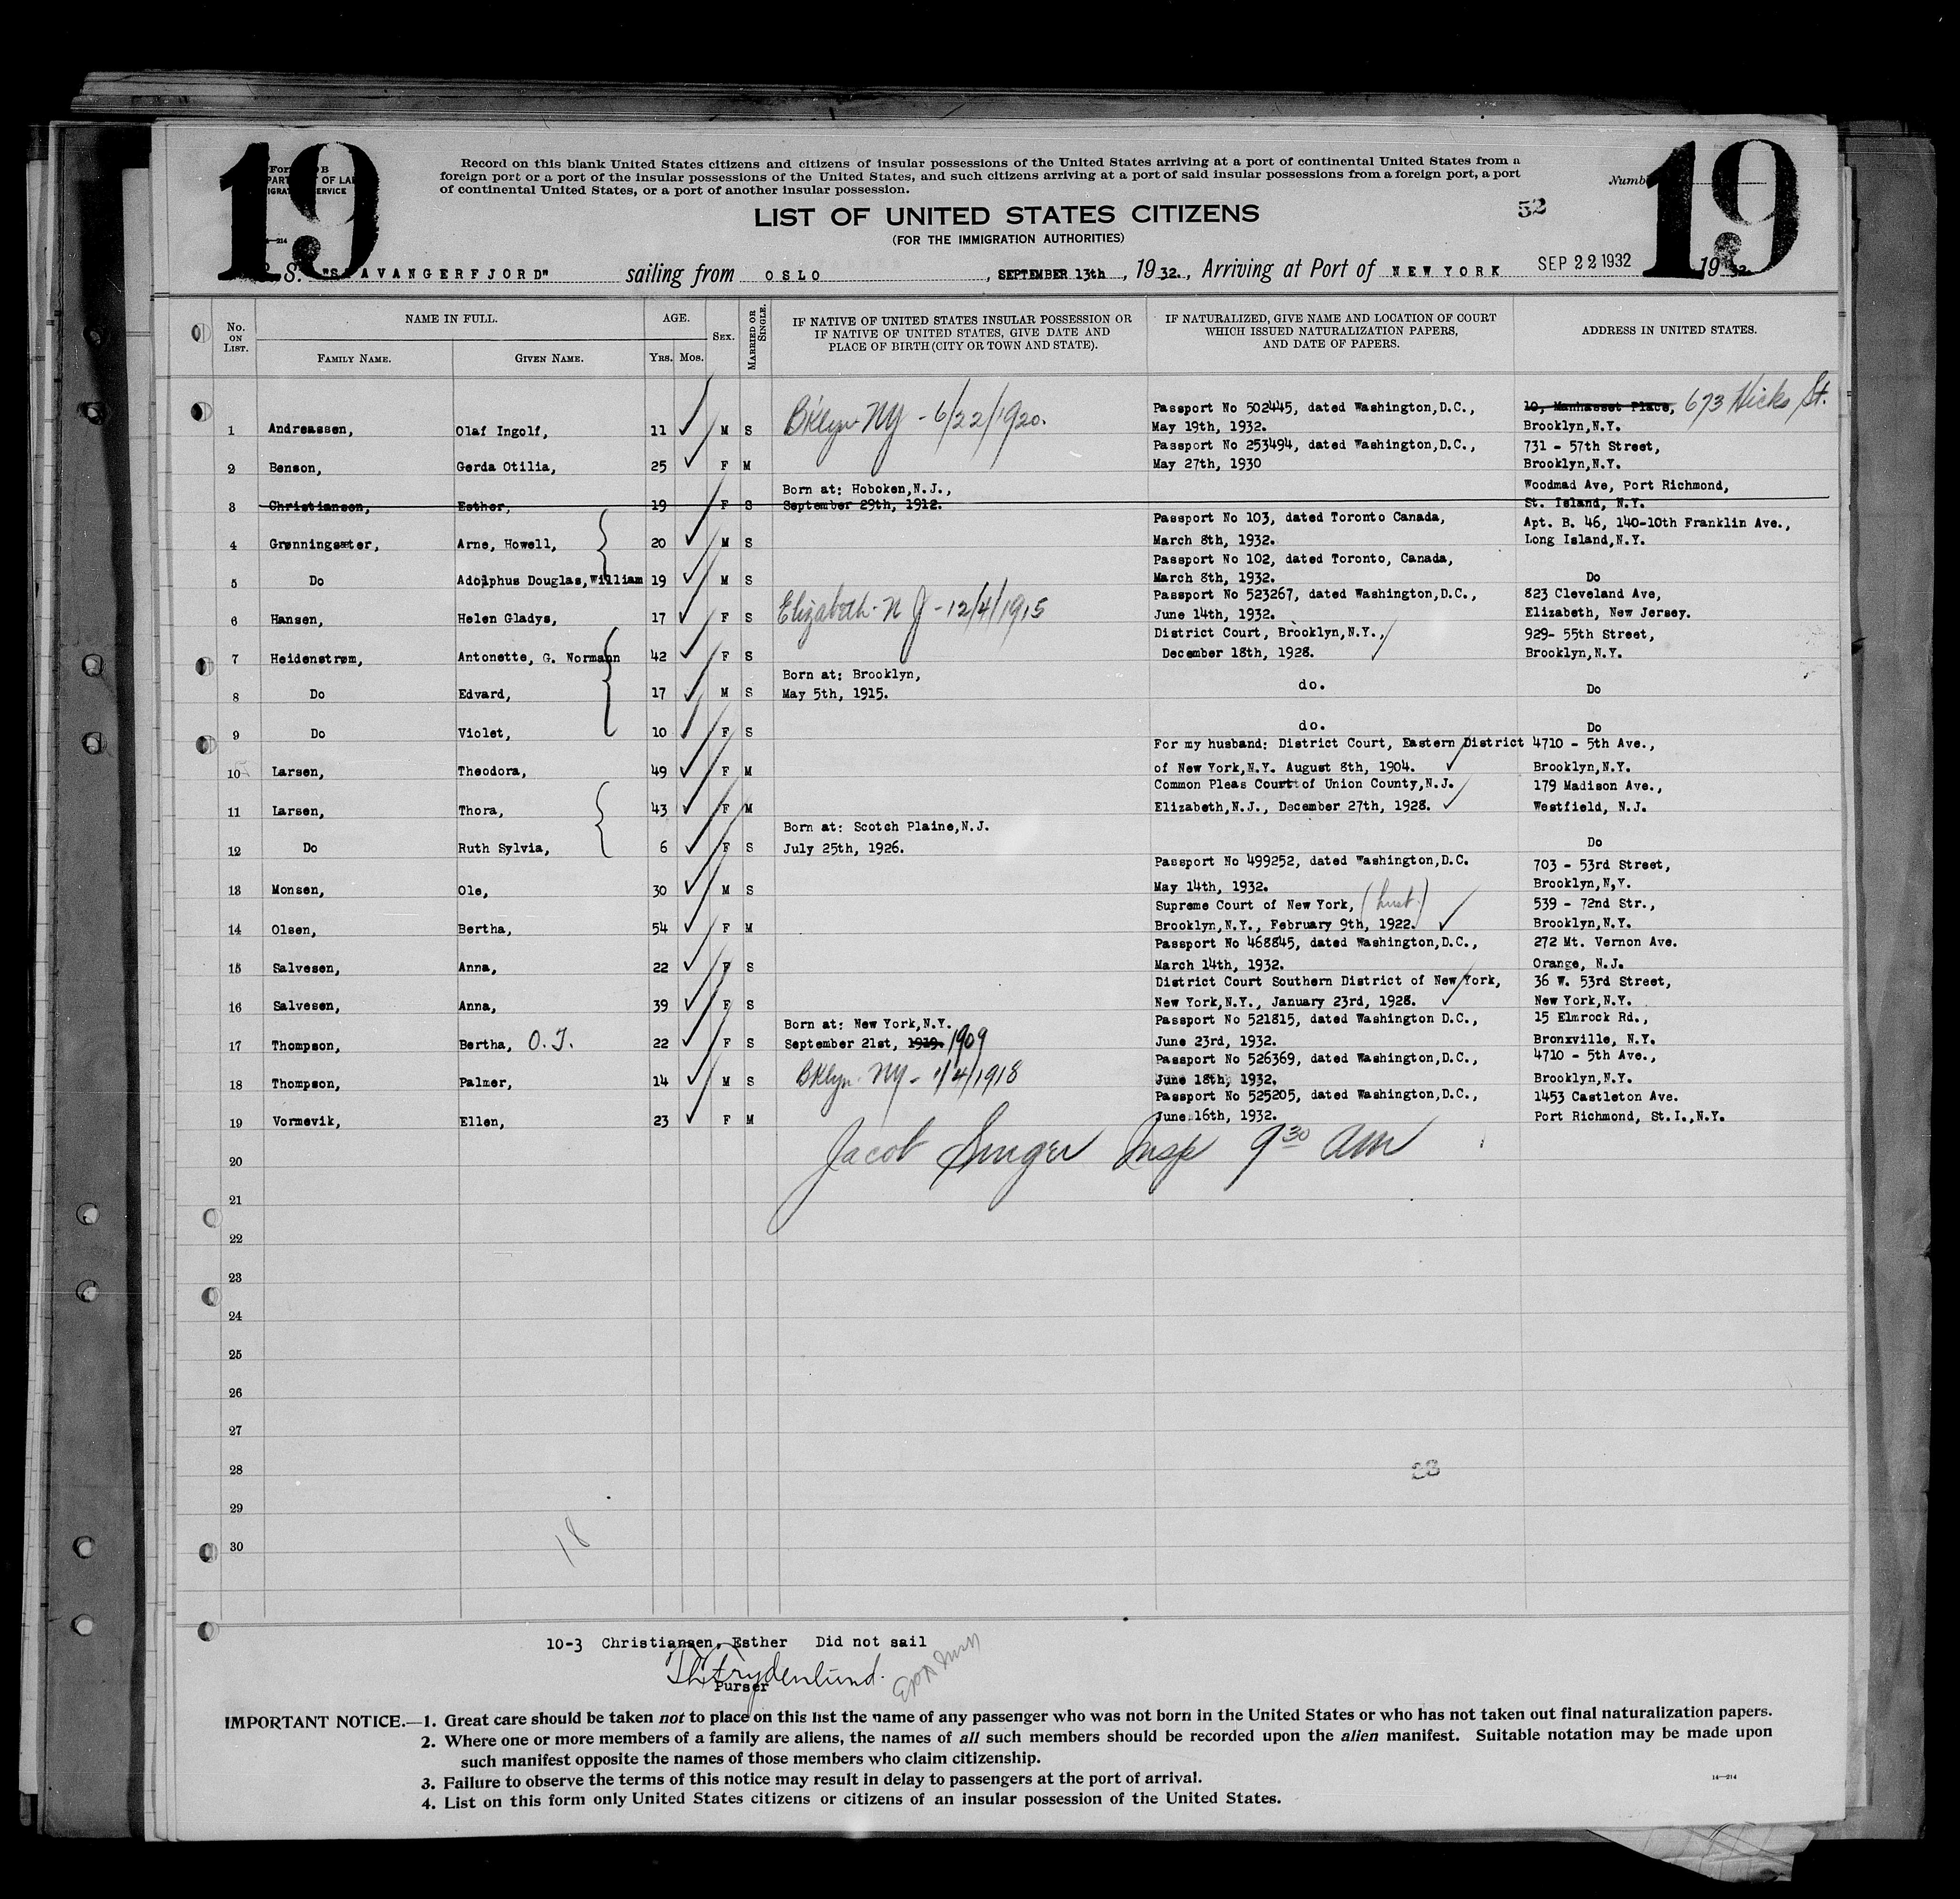 19
19
Record on this blank United States citizens and citizens of insular possessions of the United States arriving at a port of continental United States from a
foreign port or a port of the insular possessions of the United States, and such citizens arriving at a port of said insular possessions from a foreign port, a port
of continental United States, or a port of another insular possession.
52
LIST OF UNITED STATES CITIZENS
(FOR THE IMMIGRATION AUTHORITIES)
S. "STAVANGERFJORD" sailing from OSLO, SEPTEMBER 13th, 1932., Arriving at Port of NEW YORK SEP 22 1932 1932
No. ON LIST. NAME IN FULL. AGE. SEX. MARRIED OR SINGLE. IF NATIVE OF UNITED STATES INSULAR POSSESSION OR IF NATIVE OF UNITED STATES, GIVE DATE AND PLACE OF BIRTH (CITY OR TOWN AND STATE). IF NATURALIZED, GIVE NAME AND LOCATION OF COURT WHICH ISSUED NATURALIZATION PAPERS, AND DATE OF PAPERS. ADDRESS IN UNITED STATES.
FAMILY NAME. GIVEN NAME. YRS. MOS.
Passport No 502445, dated Washington,D.C., 10, Manhasset Place, 673 Hicks St.
1 Andreassen, Olaf Ingolf, 11 M S B'klyn NY - 6/22/1920. May 19th, 1932. Brooklyn,N.Y.
Passport No 253494, dated Washington,D.C., 731 - 57th Street,
2 Benson, Gerda Otilia, 25 F M May 27th, 1930 Brooklyn,N.Y.
Born at: Hoboken,N.J., Woodmad Ave, Port Richmond,
3 Christiansen, Esther, 19 F S September 29th, 1912. St. Island, N.Y.
Passport No 103, dated Toronto Canada, Apt. B. 46, 140-10th Franklin Ave.,
4 Grønningsæter, Arne, Howell, 20 M S March 8th, 1932. Long Island,N.Y.
Passport No 102, dated Toronto, Canada,
5 Do Adolphus Douglas,William 19 M S March 8th, 1932. Do
Passport No 523267, dated Washington,D.C., 823 Cleveland Ave,
6 Hansen, Helen Gladys, 17 F S Elizabeth - N J - 12/4/1915 June 14th, 1932. Elizabeth, New Jersey.
District Court, Brooklyn,N.Y., 929- 55th Street,
7 Heidenstrøm, Antonette, G. Normann 42 F S December 18th, 1928. Brooklyn,N.Y.
Born at: Brooklyn,
8 Do Edvard, 17 M S May 5th, 1915. do. Do
9 Do Violet, 10 F S do. Do
For my husband: District Court, Eastern District 4710 - 5th Ave.,
10 Larsen, Theodora, 49 F M of New York,N.Y. August 8th, 1904. Brooklyn,N.Y.
Common Pleas Court of Union County,N.J. 179 Madison Ave.,
11 Larsen, Thora, 43 F M Elizabeth,N.J., December 27th, 1928. Westfield, N.J.
Born at: Scotch Plaine,N.J.
12 Do Ruth Sylvia, 6 F S July 25th, 1926. Do
Passport No 499252, dated Washington,D.C. 703 - 53rd Street,
13 Monsen, Ole, 30 M S May 14th, 1932. Brooklyn,N,Y.
Supreme Court of New York, (husb.) 539 - 72nd Str.,
14 Olsen, Bertha, 54 F M Brooklyn,N.Y., February 9th, 1922. Brooklyn,N.Y.
Passport No 468845, dated Washington,D.C., 272 Mt. Vernon Ave.
15 Salvesen, Anna, 22 F S March 14th, 1932. Orange, N.J.
District Court Southern District of New York, 36 W. 53rd Street,
16 Salvesen, Anna, 39 F S New York,N.Y., January 23rd, 1928. New York,N.Y.
Born at: New York,N.Y. Passport No 521815, dated Washington D.C., 15 Elmrock Rd.,
17 Thompson, Bertha, O.J. 22 F S September 21st, 1919. 1909 June 23rd, 1932. Bronxville, N.Y.
Passport No 526369, dated Washington,D.C., 4710 - 5th Ave.,
18 Thompson, Palmer, 14 M S Bklyn. NY - 1/4/1918 June 18th, 1932. Brooklyn,N.Y.
Passport No 525205, dated Washington,D.C., 1453 Castleton Ave.
19 Vormevik, Ellen, 23 F M June 16th, 1932. Port Richmond, St.I.,N.Y.
20 Jacob Singer Insp 9 30 AM
21
22
23
24
25
26
27
28
28
29
18
30
10-3 Christiansen, Esther Did not sail
Purser
IMPORTANT NOTICE.—1. Great care should be taken not to place on this list the name of any passenger who was not born in the United States or who has not taken out final naturalization papers.
2. Where one or more members of a family are aliens, the names of all such members should be recorded upon the alien manifest. Suitable notation may be made upon
such manifest opposite the names of those members who claim citizenship.
3. Failure to observe the terms of this notice may result in delay to passengers at the port of arrival.
14—214
4. List on this form only United States citizens or citizens of an insular possession of the United States.